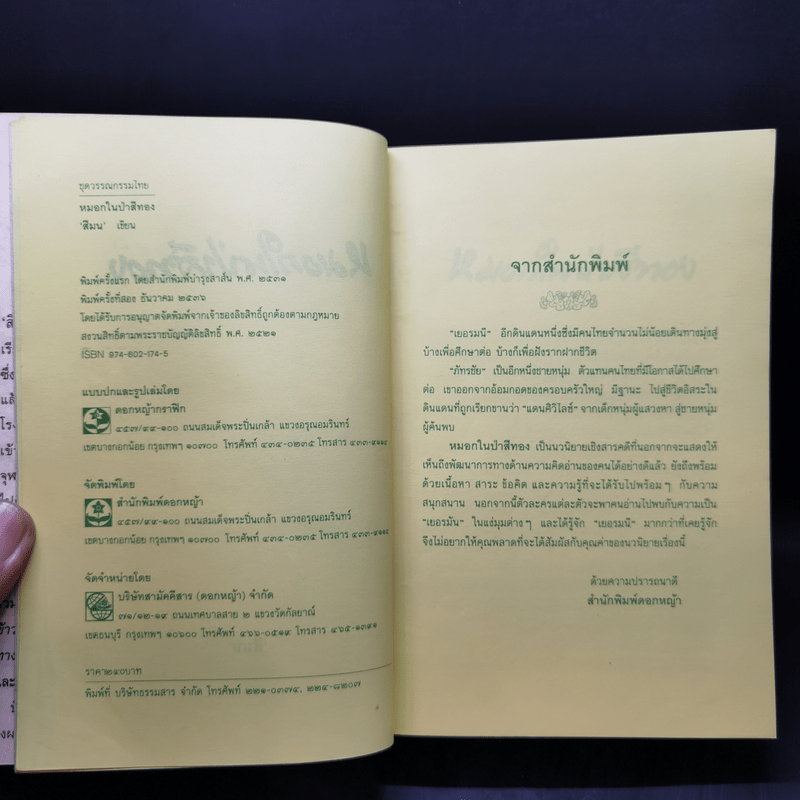 ชุดวรรณกรรมไทย
หมอกในป่าสีทอง
'สีมน' เขียน
พิมพ์ครั้งแรก โดยสำนักพิมพ์บำรุงสาส์น พ.ศ. ๒๕๓๑
พิมพ์ครั้งที่สอง ธันวาคม ๒๕๓๖
โดยได้รับการอนุญาตจัดพิมพ์จากเจ้าของลิขสิทธิ์ถูกต้องตามกฎหมาย
สงวนสิทธิ์ตามพระราชบัญญัติลิขสิทธิ์ พ.ศ. ๒๕๒๑
ISBN 974-602-174-5
แบบปกและรูปเล่มโดย
ดอกหญ้ากราฟิก
๔๕๗/๙๙-๑๐๐ ถนนสมเด็จพระปิ่นเกล้า แขวงอรุณอมรินทร์
เขตบางกอกน้อย กรุงเทพฯ ๑๐๗๐๐ โทรศัพท์ ๔๓๔-๐๒๓๕ โทรสาร
จัดพิมพ์โดย
สำนักพิมพ์ดอกหญ้า
๔๕๗/๙๙-๑๐๐ ถนนสมเด็จพระปิ่นเกล้า แขวงอรุณอมรินทร์
เขตบางกอกน้อย กรุงเทพฯ ๑๐๗๐๐ โทรศัพท์ ๔๓๔-๐๒๓๕ โทรสาร
จัดจำหน่ายโดย
บริษัทสามัคคีสาร (ดอกหญ้า) จำกัด
๗๑/๑๒-๑๙ ถนนเทศบาลสาย ๒ แขวงวัดกัลยาณ์
เขตธนบุรี กรุงเทพฯ ๑๐๖๐๐ โทรศัพท์ ๔๖๖-๐๕๑๙ โทรสาร ๔๖๕-๑๓๙๑
ราคา ๒๔๐ บาท
พิมพ์ที่ บริษัทธรรมสาร จำกัด โทรศัพท์ ๒๒๑-๐๓๗๔, ๒๒๔-๘๒๐๗
จากสำนักพิมพ์
"เยอรมนี" อีกดินแดนหนึ่งซึ่งมีคนไทยจำนวนไม่น้อยเดินทางมุ่งสู่
บ้างเพื่อศึกษาต่อ บ้างก็เพื่อฝังรากฝากชีวิต
"ภัทรชัย" เป็นอีกหนึ่งชายหนุ่ม ตัวแทนคนไทยที่มีโอกาสได้ไปศึกษา
ต่อ เขาออกจากอ้อมกอดของครอบครัวใหญ่ มีฐานะ ไปสู่ชีวิตอิสระใน
ดินแดนที่ถูกเรียกขานว่า "แดนศิวิไลซ์" จากเด็กหนุ่มผู้แสวงหา สู่ชายหนุ่ม
ผู้ค้นพบ
หมอกในป่าสีทอง เป็นนวนิยายเชิงสารคดีที่นอกจากจะแสดงให้
เห็นถึงพัฒนาการทางด้านความคิดอ่านของคนได้อย่างดีแล้ว ยังถึงพร้อม
ด้วยเนื้อหา สาระ ข้อคิด และความรู้ที่จะได้รับไปพร้อมๆ กับความ
สนุกสนาน นอกจากนี้ตัวละครแต่ละตัวจะพาคนอ่านไปพบกับความเป็น
"เยอรมัน" ในแง่มุมต่างๆ และได้รู้จัก "เยอรมนี" มากกว่าที่เคยรู้จัก
จึงไม่อยากให้คุณพลาดที่จะได้สัมผัสกับคุณค่าของนวนิยายเรื่องนี้
ด้วยความปรารถนาดี
สำนักพิมพ์ดอกหญ้า